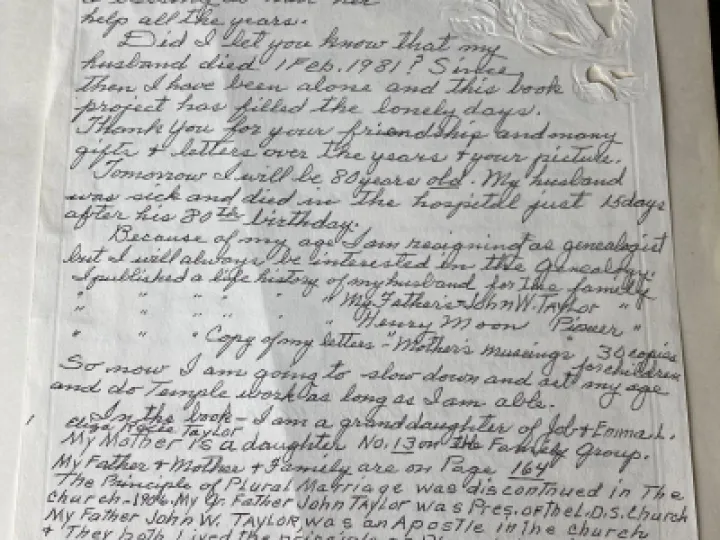 help all the years.
Did I let you know that my
husband died 1 Feb. 1981? Since
then I have been alone and this book
project has filled the lonely days.
Thank you for your friendship and many
gifts & letters over the years & your picture.
Tomorrow I will be 80 years old. My husband
was sick and died in the hospital just 15 days
after his 80th birthday.
Because of my age I am resigning as genealogist
but I will always be interested in the Genealogy.
I published a life history of my husband for the family
" " " " " " My Father's - John W. Taylor "
" " " " " " Henry Moon "Pioneer"
" " " Copy of my letters - "Mother's musings" 30 copies
for children
So now I am going to slow down and act my age
and do Temple work as long as I am able.
In the book - I am a granddaughter of Job & Emma L.
Taylor
My Mother is a daughter No. 13 on the Family Group.
My Father & Mother & Family are on Page 164
The Principle of Plural Marriage was discontinued in The
Church - My Gr. Father John Taylor was Pres. of the L.D.S. Church
My Father John W. Taylor, was an Apostle in the church
& They both lived the principle